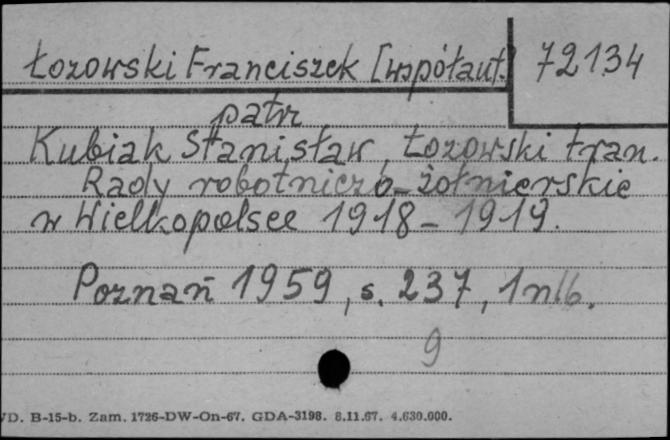 Łozowski Franciszek [współaut.] 72134
patrz
Kubiak Stanisław, Łozowski Fran.
Rady robotniczo-żołnierskie
w Wielkopolsce 1918-1919.
Poznań 1959, s. 237, 1 nlb.
9
D. B-15-b. Zam. 1726-DW-On-67. GDA-3198. 8.11.67. 4.630.000.